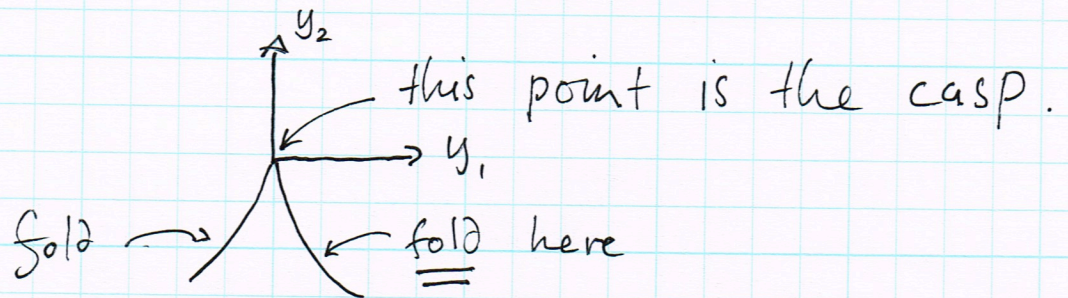 y₂
this point is the casp.
y₁
fold fold here